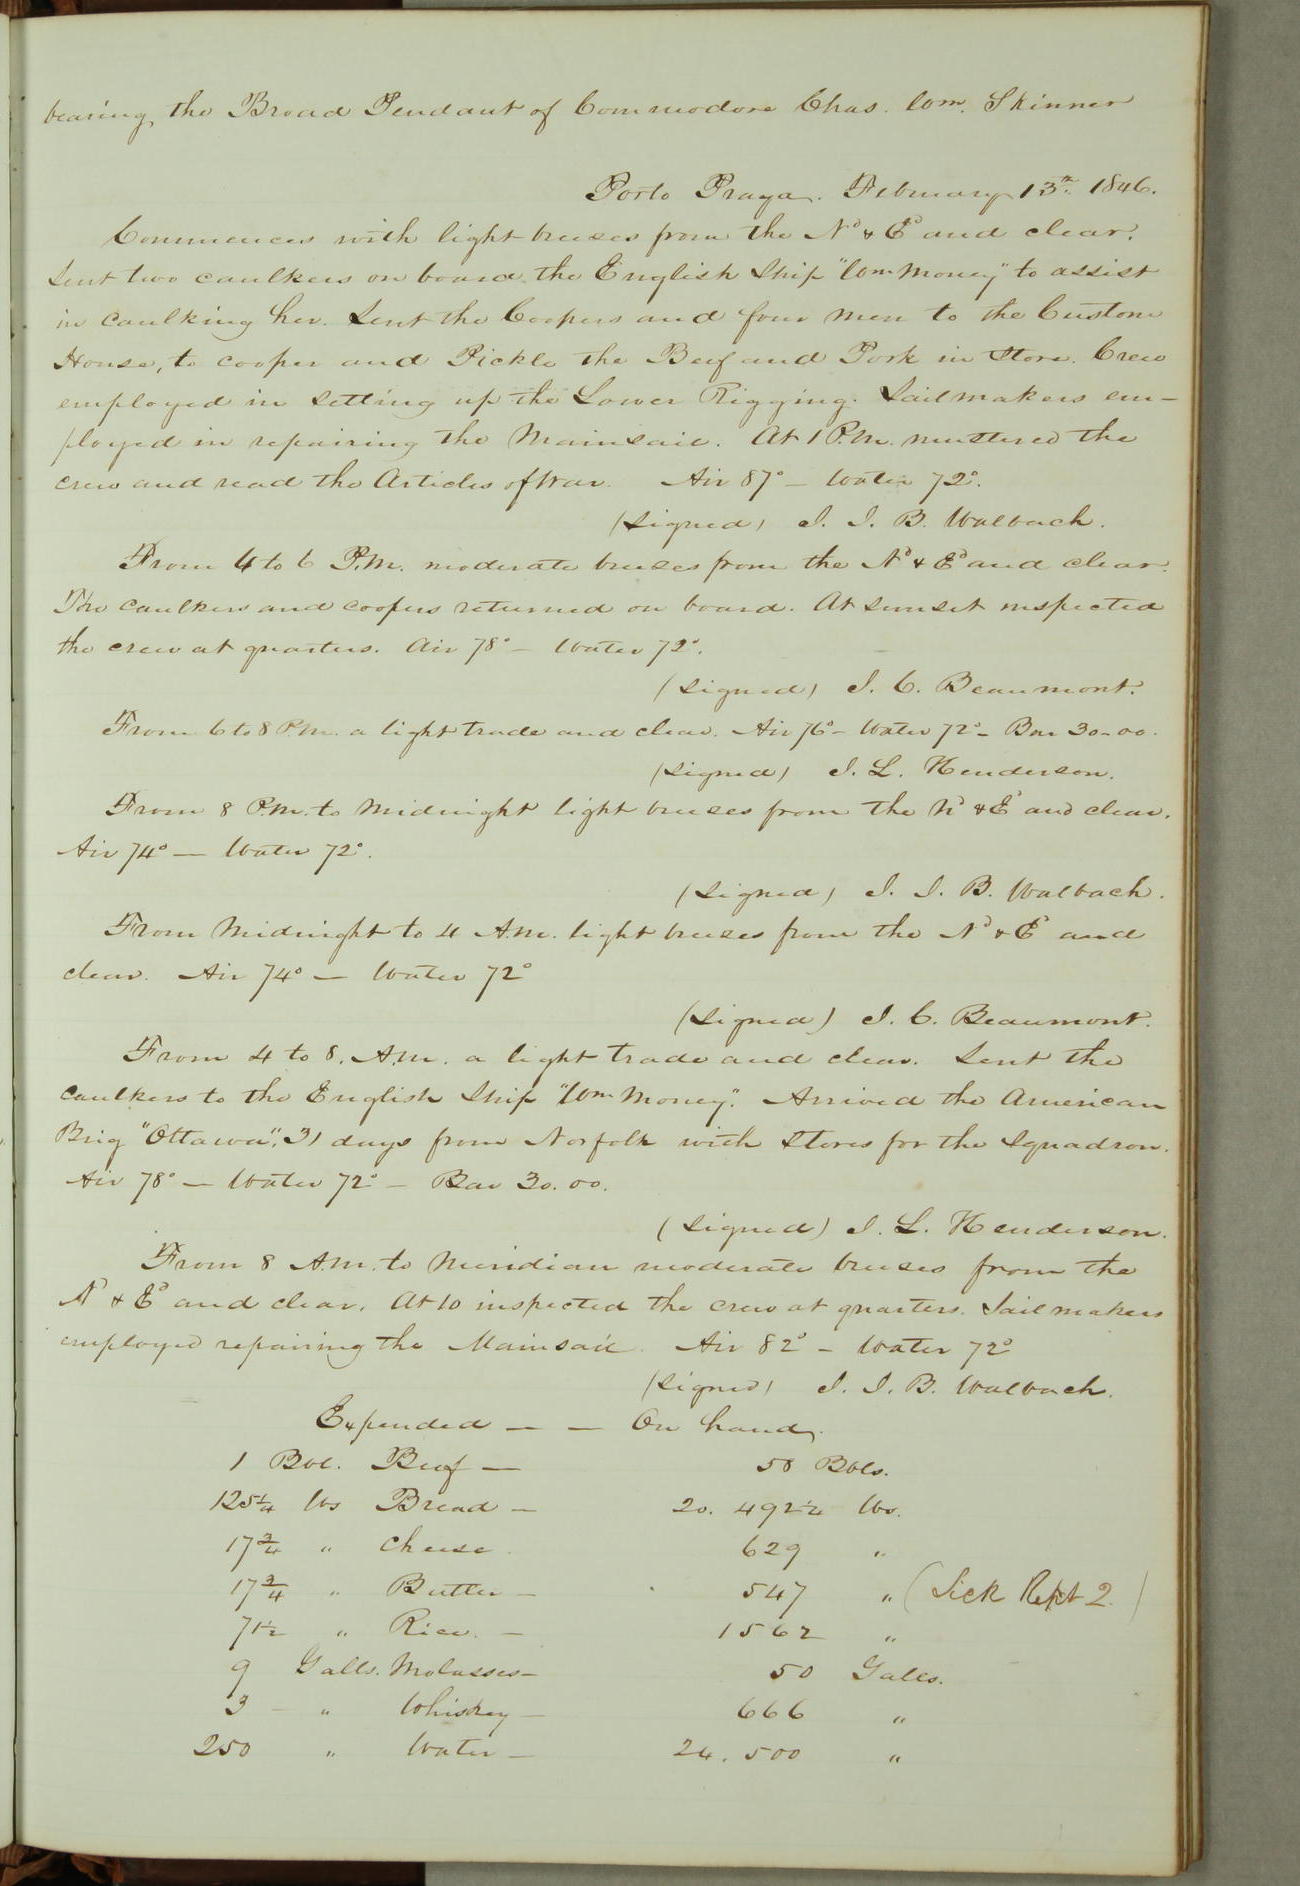 bearing the Broad Pendant of Commodore Chas. Wm. Skinner
Porto Praya. February 13th. 1846.
Commences with light breezes from the Nd & Ed and clear.
Sent two caulkers on board the English Ship "Wm Money" to assist
in caulking her. Sent the Coopers and four men to the Custom
House, to cooper and Pickle the Beef and Pork in Store. Crew
employed in setting up the Lower Rigging. Sailmakers em-
ployed in repairing the Mainsail. At 1 P.M. mustered the
crew and read the Articles of War. Air 87° – Water 72°.
(Signed) J. J. B. Walbach.
From 4 to 6 P.M. moderate breezes from the Nd & Ed and clear.
The caulkers and coopers returned on board. At sunset inspected
the crew at quarters. Air 78° – Water 72°.
(Signed) J. C. Beaumont.
From 6 to 8 P.M. a light trade and clear. Air 76° – Water 72° – Bar 30-00.
(Signed) J. L. Henderson.
From 8 P.M. to Midnight light breezes from the Nd & Ed and clear.
Air 74° — Water 72°.
(Signed) J. J. B. Walbach.
From Midnight to 4 A.M. light breezes from the Nd & Ed and
clear. Air 74° — Water 72°
(Signed) J. C. Beaumont.
From 4 to 8. A.M. a light trade and clear. Sent the
caulkers to the English Ship "Wm Money". Arrived the American
Brig "Ottawa", 31 days from Norfolk with Stores for the Squadron.
Air 78° — Water 72° – Bar 30.00.
(Signed) J. L. Henderson.
From 8 A.M. to Meridian moderate breezes from the
Nd & Ed and clear. At 10 inspected the crew at quarters. Sailmakers
employed repairing the Mainsail. Air 82° – Water 72°
(Signed) J. J. B. Walbach.
Expended — — On hand.
1 Bbl. Beef — 58 Bbls.
125¼ lbs Bread — 20.492¼ lbs.
17¾ " Cheese. 629 "
17¾ " Butter — 547 " (Sick Rept 2.)
7½ " Rice. — 1562 "
9 Galls. Molasses — 50 Galls.
3 — " Whiskey — 666 "
250 " Water — 24.500 "